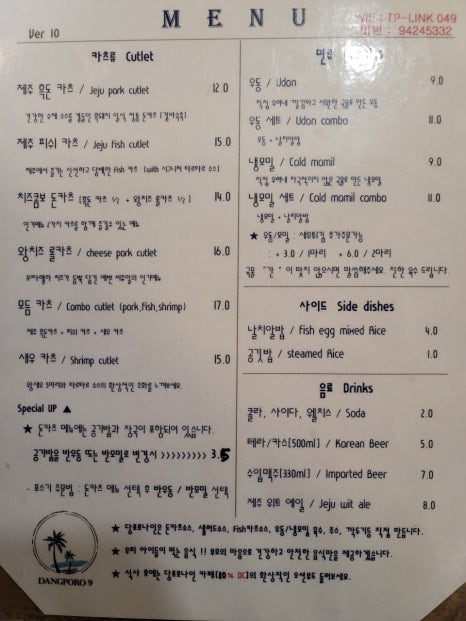 Ver 10
MENU
WiFi : TP-LINK 049
비번 : 94245332
카츠류 Cutlet
제주 흑돈 카츠 / Jeju pork cutlet 12.0
제주 피쉬 카츠 / Jeju fish cutlet 15.0
치즈콤보 돈카츠 [흑돈 카츠 ½ + 왕치즈 롤카츠 ½] 14.0
인기메뉴 2가지 카츠를 함께 즐길수 있는 메뉴
왕치즈 롤카츠 / cheese pork cutlet 16.0
모듬 카츠 / Combo cutlet (pork,fish,shrimp) 17.0
제주 흑돈카츠 + 피쉬 카츠 + 새우 카츠
새우 카츠 / Shrimp cutlet 15.0
Special UP ▲
★ 돈카츠 메뉴에는 공기밥과 장국이 포함되어 있습니다.
공기밥을 반우동 또는 반모밀로 변경시 >>>>>>>>> 3.5
- 포스기 주문법 : 돈카츠 메뉴 선택 후 반우동 / 반모밀 선택
면류
우동 / Udon 9.0
우동 세트 / Udon combo 11.0
우동 + 날치알밥
냉모밀 / Cold momil 9.0
냉모밀 세트 / Cold momil combo 11.0
냉모밀 + 날치알밥
★ 우동/모밀 : 새우튀김 추가주문가능
: + 3.0 / 1마리 + 6.0 / 2마리
국물 "간" 이 맞지 않으시면 말씀해주세요. 진한 육수 드립니다.
사이드 Side dishes
날치알밥 / fish egg mixed Rice 4.0
공깃밥 / steamed Rice 1.0
음료 Drinks
콜라, 사이다, 웰치스 / Soda 2.0
테라/카스[500ml] / Korean Beer 5.0
수입맥주[330ml] / Imported Beer 7.0
제주 위트 에일 / Jeju wit ale 8.0
DANGPORO 9
★ 당포로나인은 돈카츠소스, 샐러드소스, Fish카츠소스, 우동/냉모밀 육수, 주스, 깍두기등 직접 만듭니다.
★ 우리 아이들이 먹는 음식 !! 부모의 마음으로 건강하고 안전한 음식만을 제공하겠습니다.
★ 식사 후에는 당포로나인 카페[80% DC]의 환상적인 오션뷰도 둘러보세요.